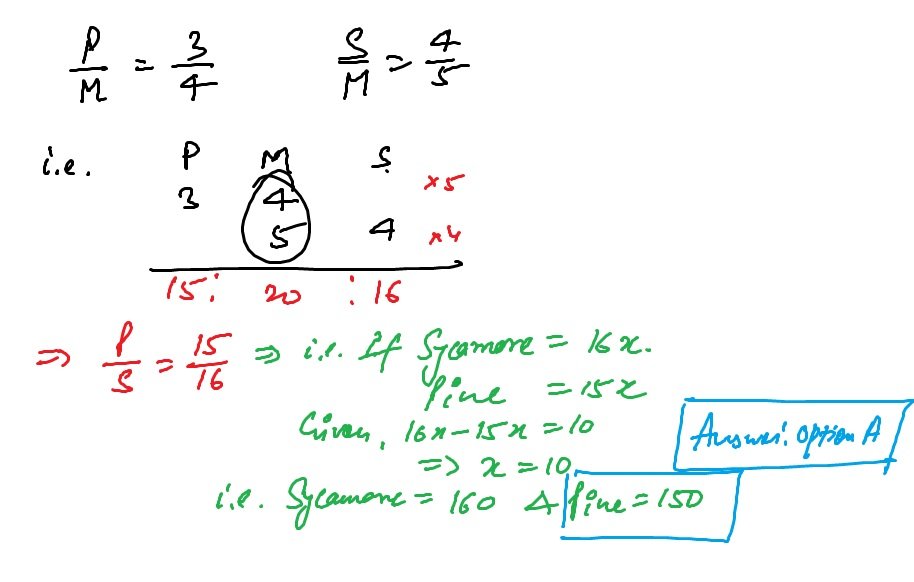 P/M = 3/4 S/M = 4/5
i.e. P M S
3 4 ×5
5 4 ×4
15 : 20 : 16
⇒ P/S = 15/16 ⇒ i.e. If Sycamore = 16x.
Pine = 15x
Given, 16x-15x=10
⇒ x=10
i.e. Sycamore = 160 & Pine = 150
Answer: option A